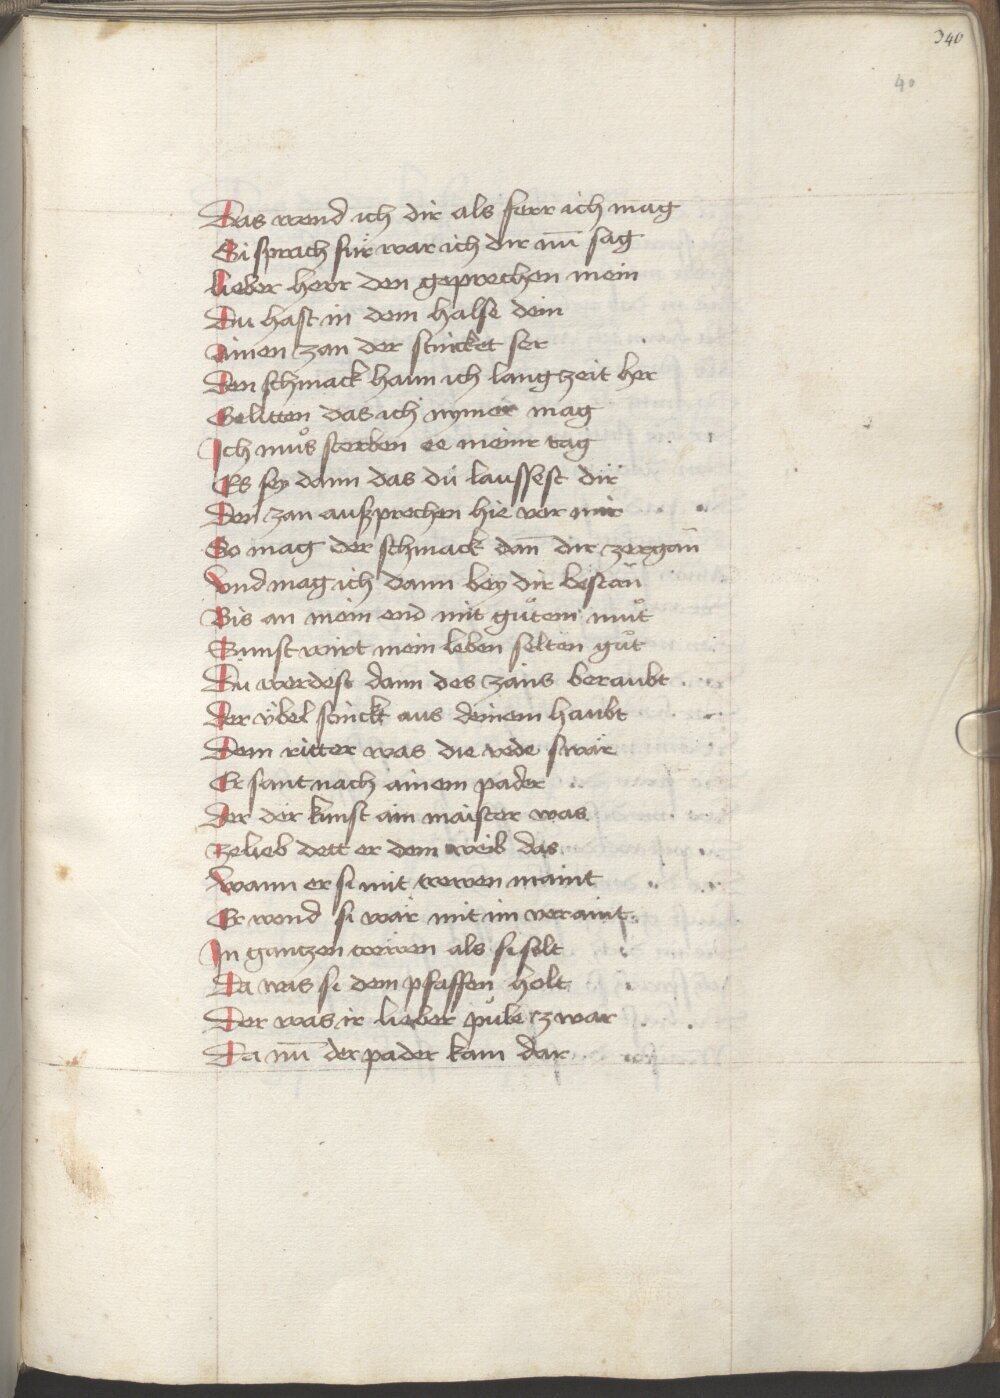 340
40
Das wend ich dir als ferr ich mag
Si sprach für war ich dir nu̅ sag
lieber herr den geprechen mein
Du hast in dem halse dein
ainen zan der stincket ser
Den schmack hann ich lang zeit her
Gelitten das ich nymer mag
Ich muͦs sterben ee meinr tag
Es sey dann das du laussest dir
Den zan außprechen hie vor mir
So mag der schmack dan̅ dir zergan̅
vnd mag ich dann bey dir bestan̅
Bis an mein end mit guͦtem muͦt
Sunst wirt mein leben selten guͦt
Du werdest dann des zans beraubt
der vbel stinckt aus deinem haubt
Dem ritter was die rede swär
Er sant nach ainem pader
Der der kunst ain maister was
zelieb dett er dem weib das
wann er si mit trewen maint
Er wend si wär mit im veraint
In gantzen trewen als si solt
Da was si dem pfaffen holt
Der was ir lieber puͦle zwar
Da nu̅ der pader kam dar